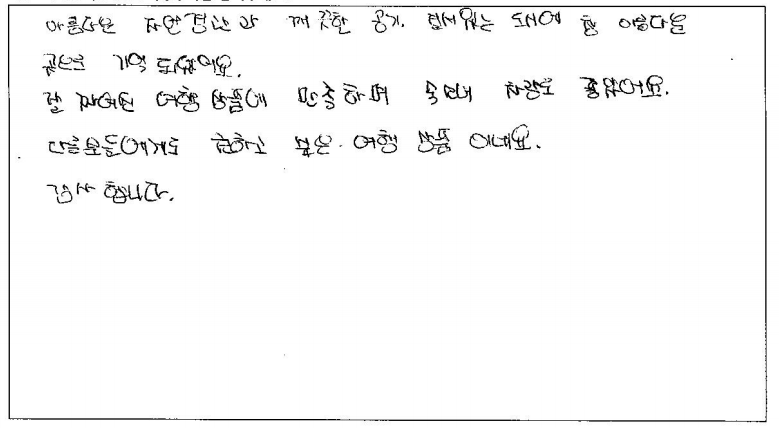 아름다운 자연경관과 깨끗한 공기. 질서있는 도시에 참 아름다운
곳으로 기억 되었어요.
잘 짜여진 여행 상품에 만족하며 숙면내 차량도 좋았어요.
다른분들에게도 권하고 싶은 여행 상품 이네요.
감사 합니다.